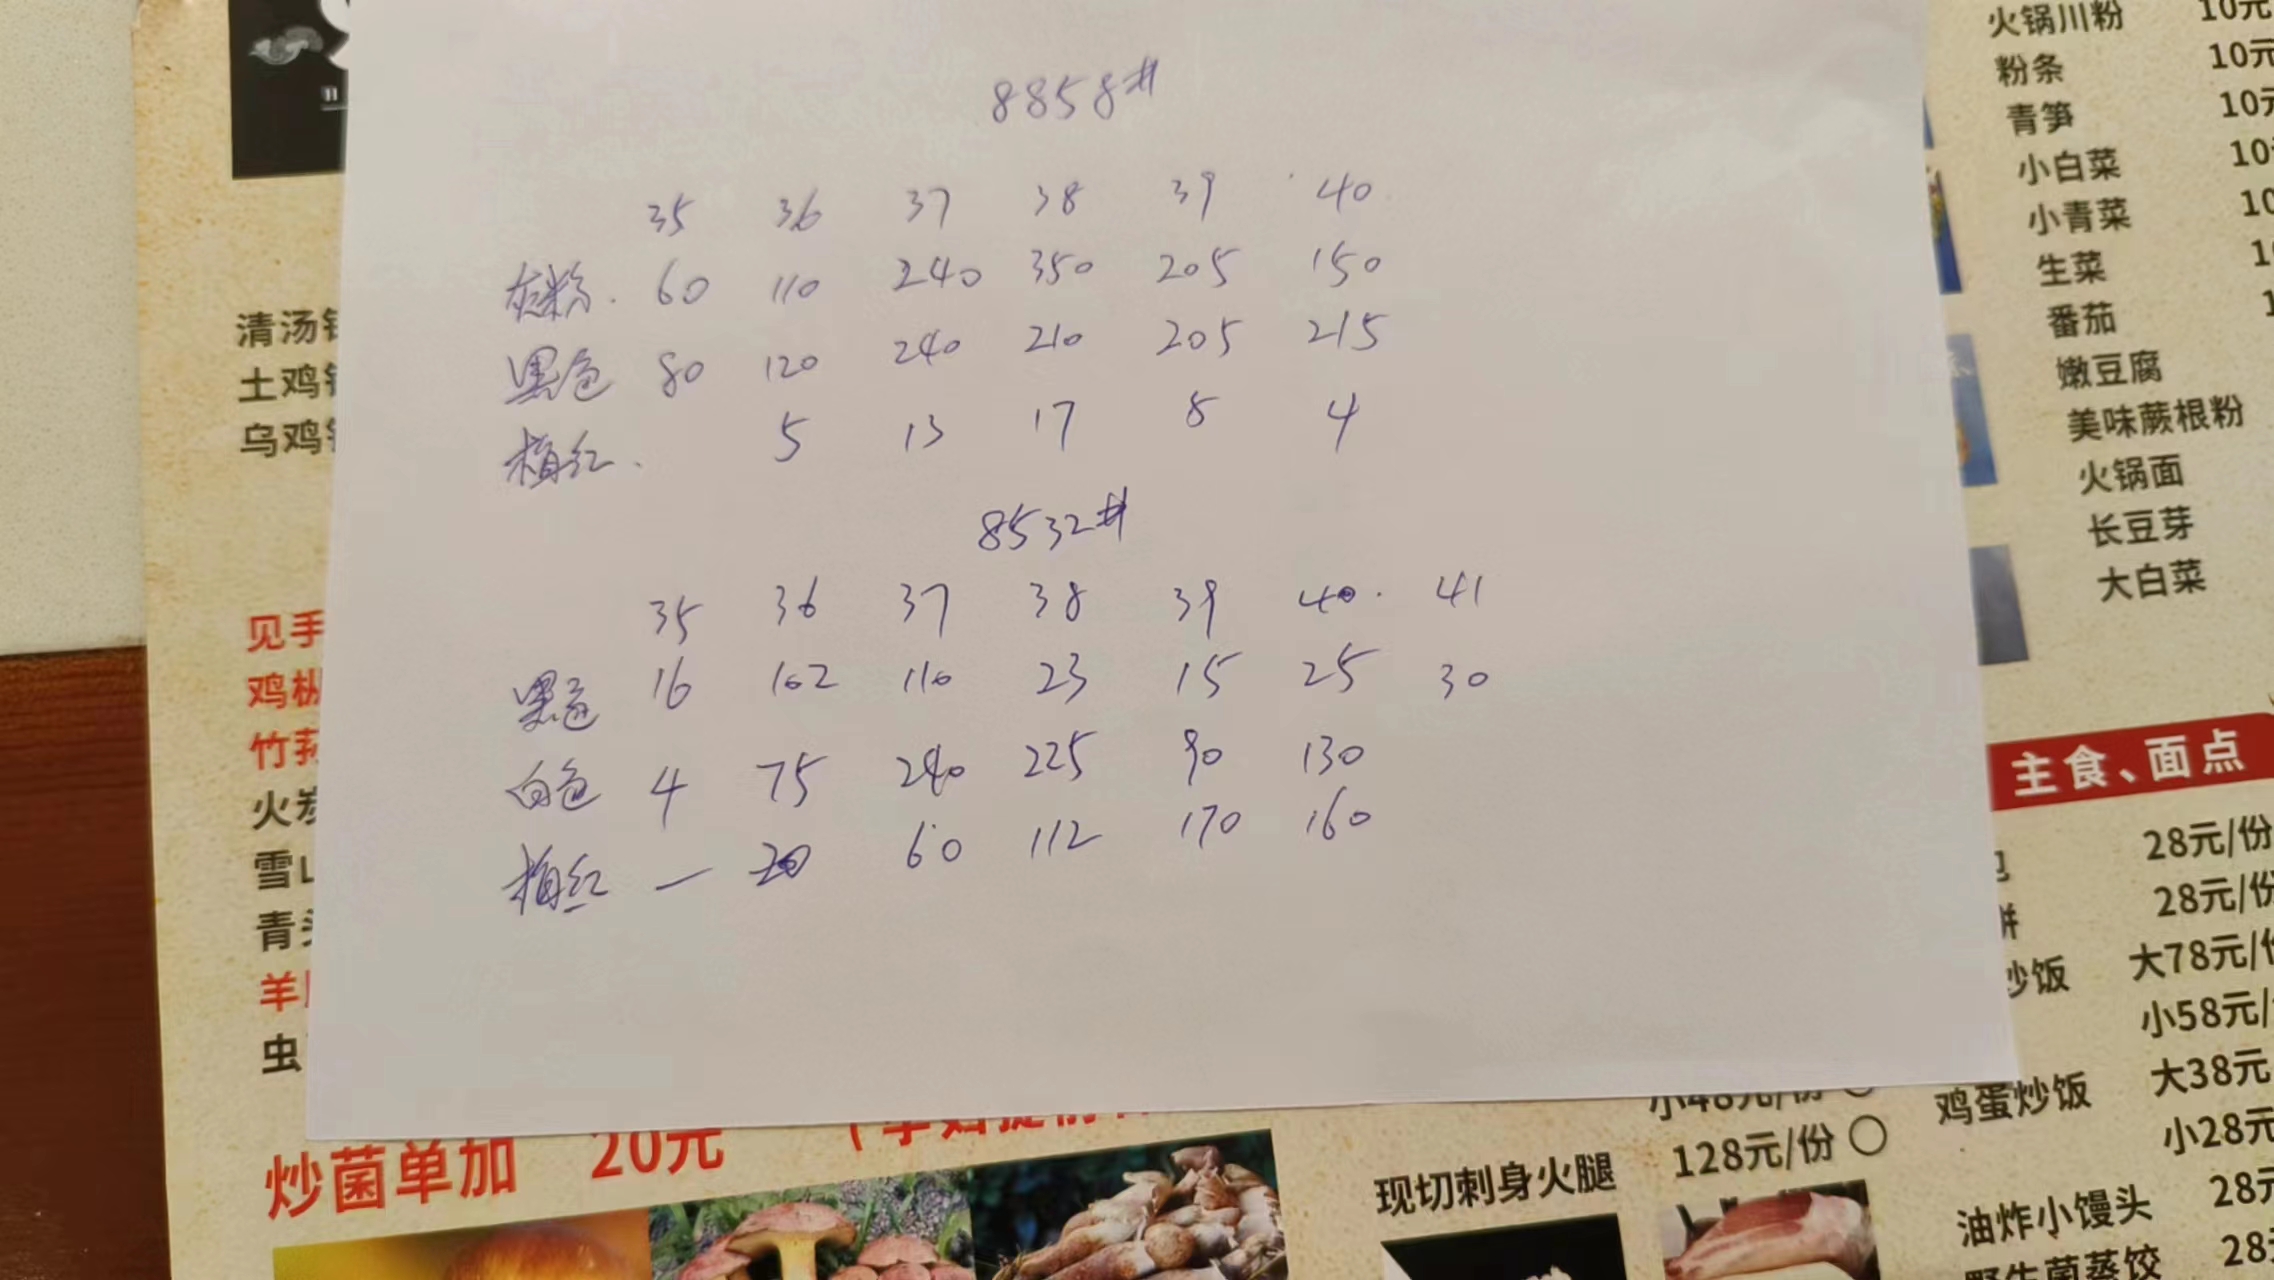 8858#
35 36 37 38 39 40
灰粉. 60 110 240 350 205 150
黑色 80 120 240 210 205 215
梅红. 5 13 17 8 4
8532#
35 36 37 38 39 40. 41
黑色 16 102 110 23 15 25 30
白色 4 75 240 225 90 130
梅红 — 20 60 112 170 160
清汤
土鸡
乌鸡
见手
鸡枞
竹荪
火炭
雪山
青头
羊
虫
炒菌单加 20元
火锅川粉 10元
粉条 10元
青笋 10元
小白菜 10
小青菜 10
生菜
番茄
嫩豆腐
美味蕨根粉
火锅面
长豆芽
大白菜
主食、面点
28元/份
饼 28元/份
炒饭 大78元/份
小58元/
鸡蛋炒饭 大38元
小28元
油炸小馒头 28元
野生菌蒸饺 28元
小48元/份
现切刺身火腿 128元/份